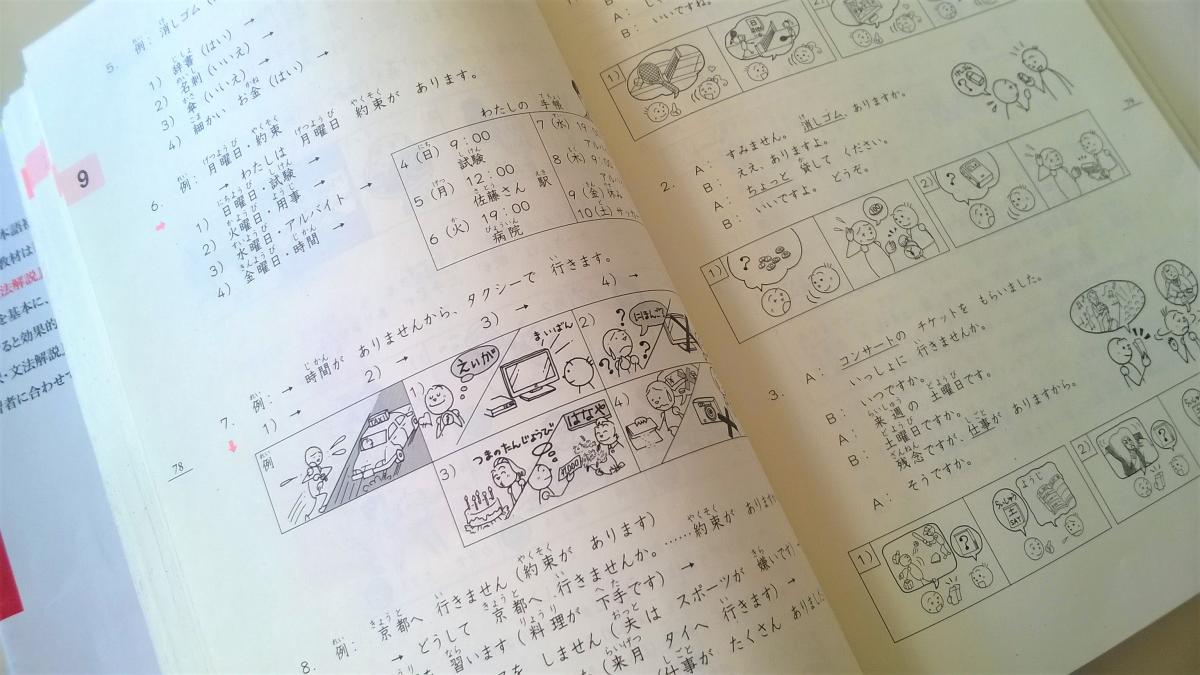 例：消しゴム
5.
1) 辞書（はい）→
2) 名刺（いいえ）→
3) 傘（いいえ）→
4) 細かい お金（はい）→
6.
例：月曜日・約束
→ わたしは 月曜日 約束が あります。
1) 日曜日・試験 →
2) 火曜日・用事 →
3) 水曜日・アルバイト →
4) 金曜日・時間 →
わたしの 手帳
4（日）9：00
試験
5（月）12：00
佐藤さん 駅
6（火）19：00
病院
7（水）19：
8（木）9：00
9（金）休み
10（土）サッカー
7.
例：→ 時間が ありませんから、タクシーで 行きます。
1) → 2) → 3) → 4) →
例
TAXI
1)
えいが
まいばん
2)
にほんご
3)
つまのたんじょうび
はなや
4)
78
8.
例：京都へ 行きません（約束が あります）
→ どうして 京都へ 行きませんか。……約束が あります
習います（料理が 下手です）→
しません（夫は スポーツが 嫌いです）
（来月 タイへ 行きます）→
（仕事が たくさん ありました
9
B：いいですね。
1)
2)
79
2.
A：すみません。消しゴム、ありますか。
B：ええ、ありますよ。
A：ちょっと 貸して ください。
B：いいですよ。どうぞ。
1)
2)
3.
A：コンサートの チケットを もらいました。
いっしょに 行きませんか。
B：いつですか。
A：来週の 土曜日です。
B：土曜日ですか。
残念ですが、仕事が ありますから。
A：そうですか。
1)
らいしゅう
土
SAT
ようじ
2)